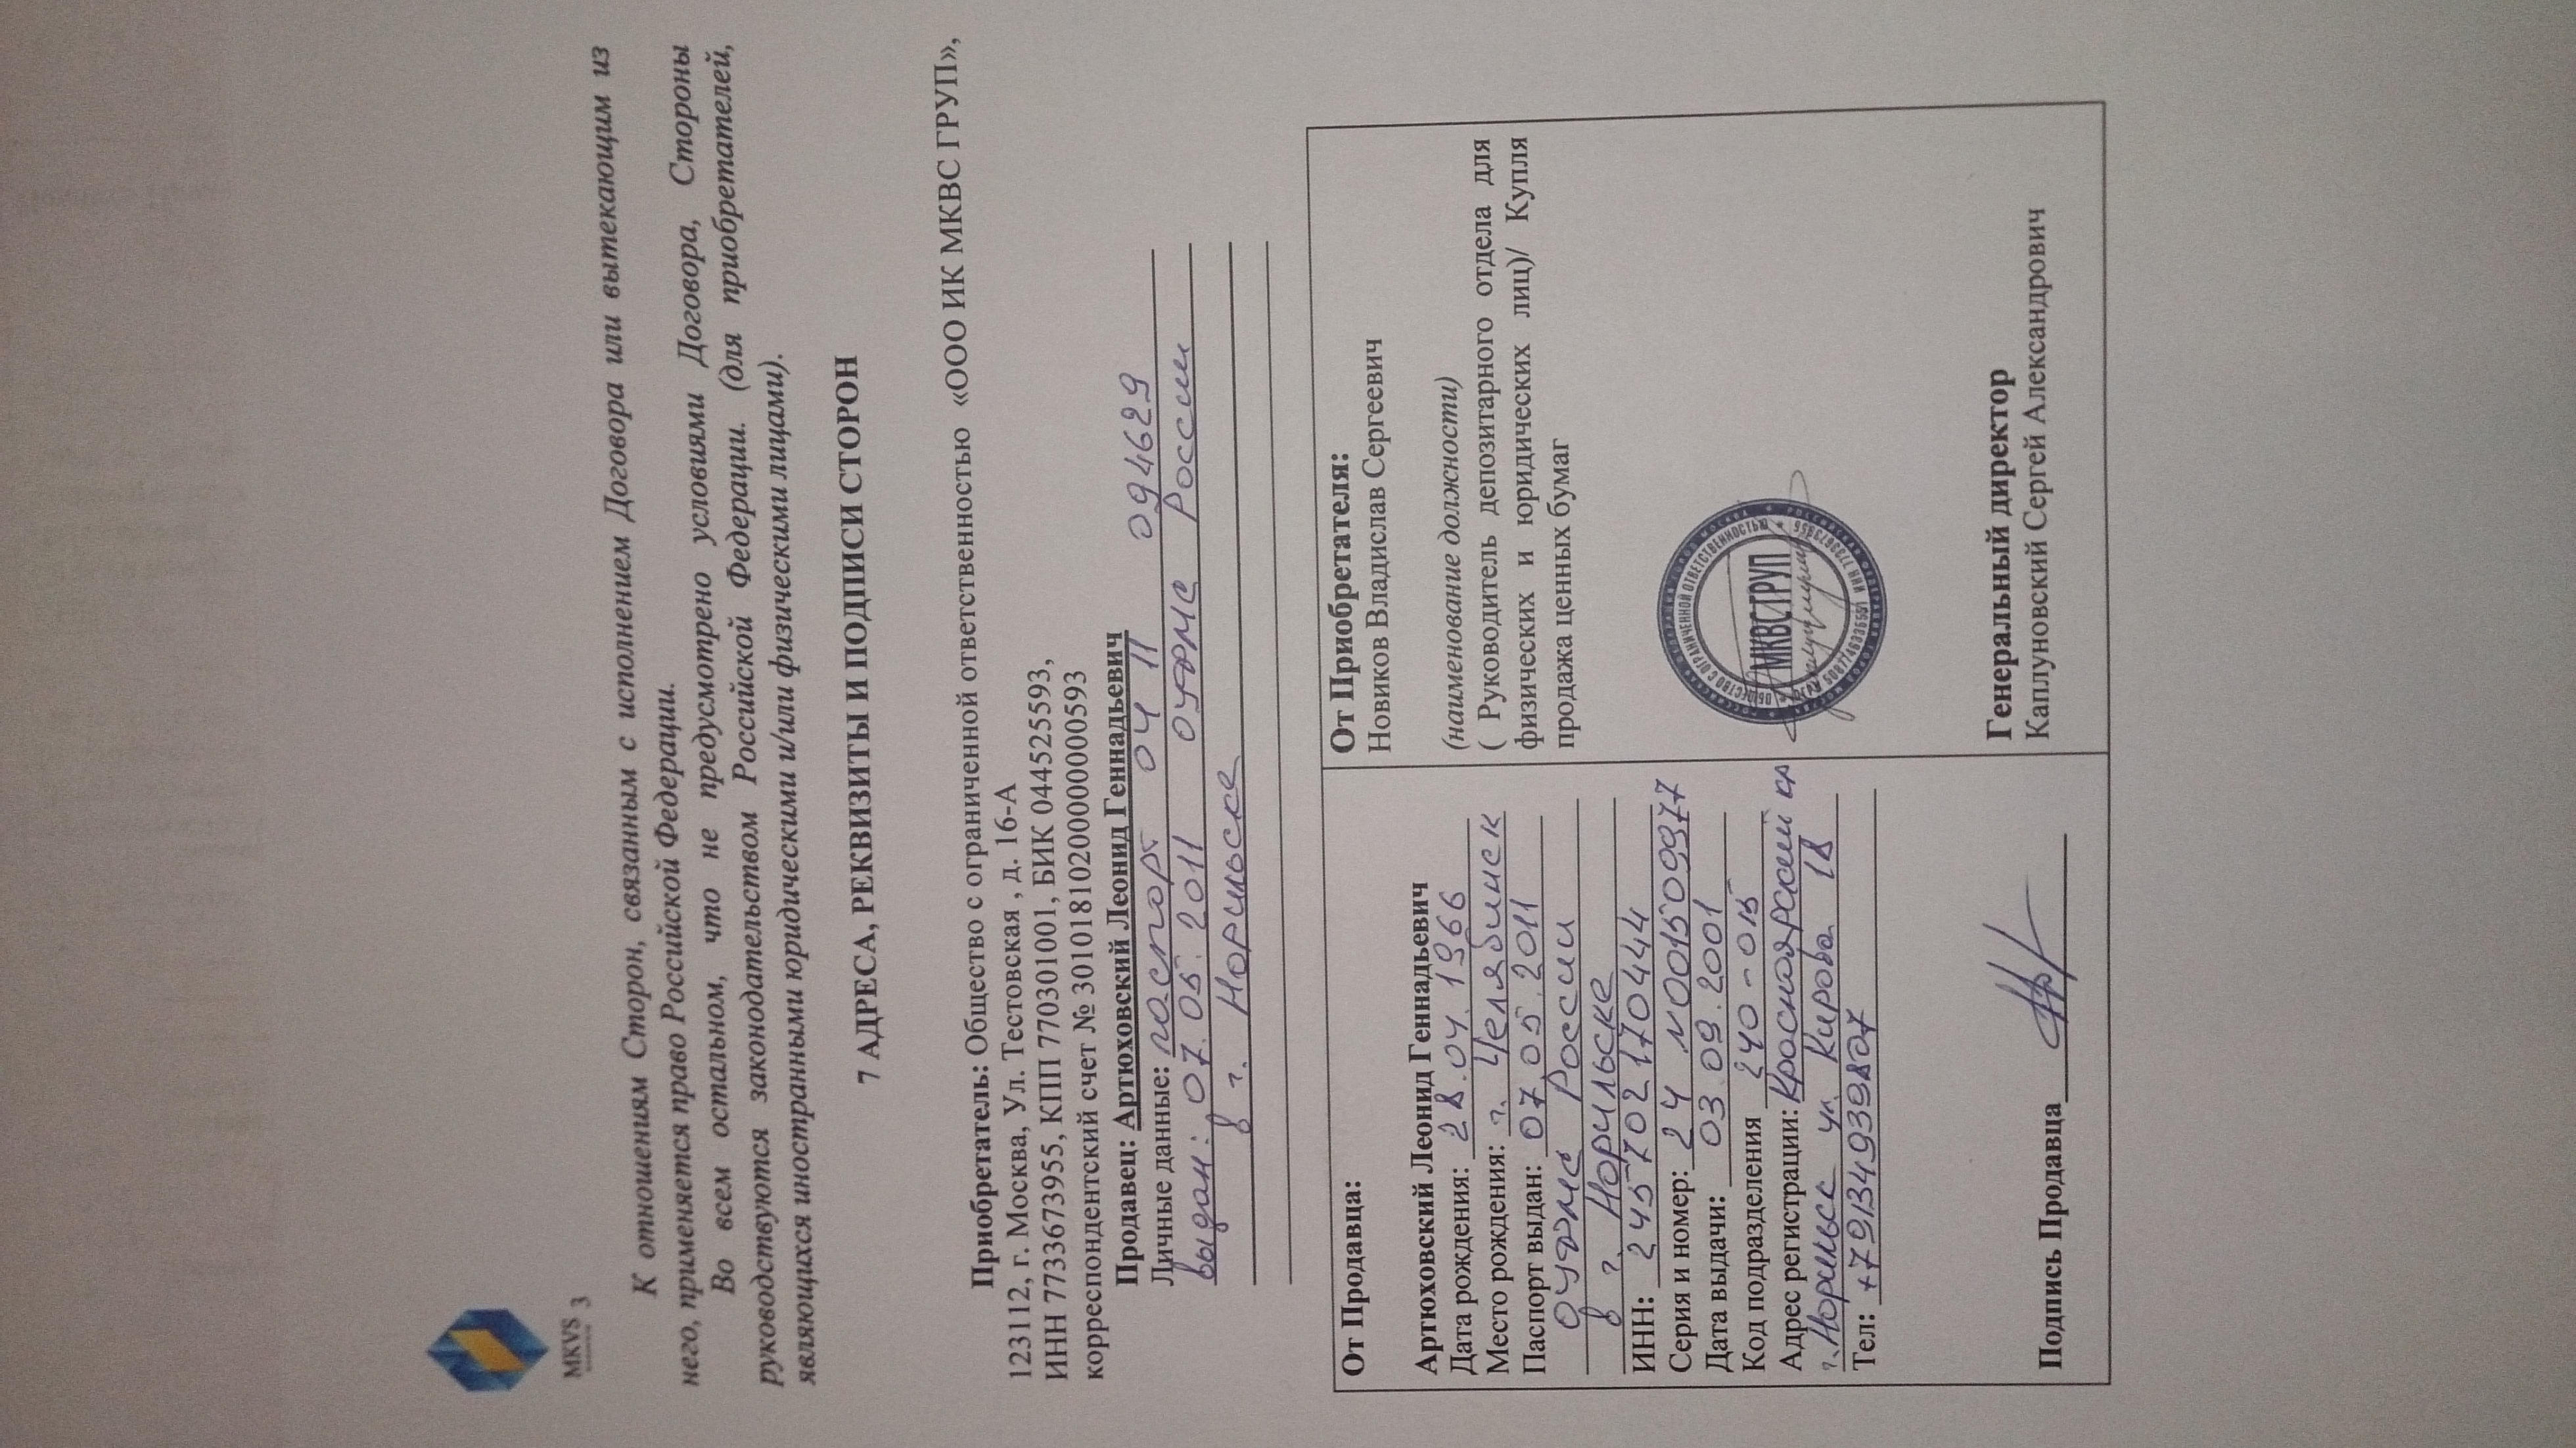 MKVS 3
К отношениям Сторон, связанным с исполнением Договора или вытекающим из
него, применяется право Российской Федерации.
Во всем остальном, что не предусмотрено условиями Договора, Стороны
руководствуются законодательством Российской Федерации. (для приобретателей,
являющихся иностранными юридическими и/или физическими лицами).
7 АДРЕСА, РЕКВИЗИТЫ И ПОДПИСИ СТОРОН
Приобретатель: Общество с ограниченной ответственностью «ООО ИК МКВС ГРУП»,
123112, г. Москва, Ул. Тестовская , д. 16-А
ИНН 7733673955, КПП 770301001, БИК 044525593,
корреспондентский счет № 30101810200000000593
Продавец: Артюховский Леонид Геннадьевич
Личные данные: паспорт 04 11 094629
выдан: 07.05.2011 ОУФМС России
в г. Норильске
От Продавца:
Артюховский Леонид Геннадьевич
Дата рождения: 28.04.1966
Место рождения: г. Челябинск
Паспорт выдан: 07.05.2011
ОУФМС России
в г. Норильске
ИНН: 245702170444
Серия и номер: 24 N001509977
Дата выдачи: 03.09.2001
Код подразделения 240-015
Адрес регистрации: Красноярский кр
г. Норильск ул. Кирова 18
Тел: +79134939807
Подпись Продавца
От Приобретателя:
Новиков Владислав Сергеевич
(наименование должности)
( Руководитель депозитарного отдела для
физических и юридических лиц)/ Купля
продажа ценных бумаг
ОБЩЕСТВО С ОГРАНИ�ченной ОТВЕТСТВЕННОСТЬЮ
МКВС ГРУП
ИНН 7733673955
Генеральный директор
Каплуновский Сергей Александрович